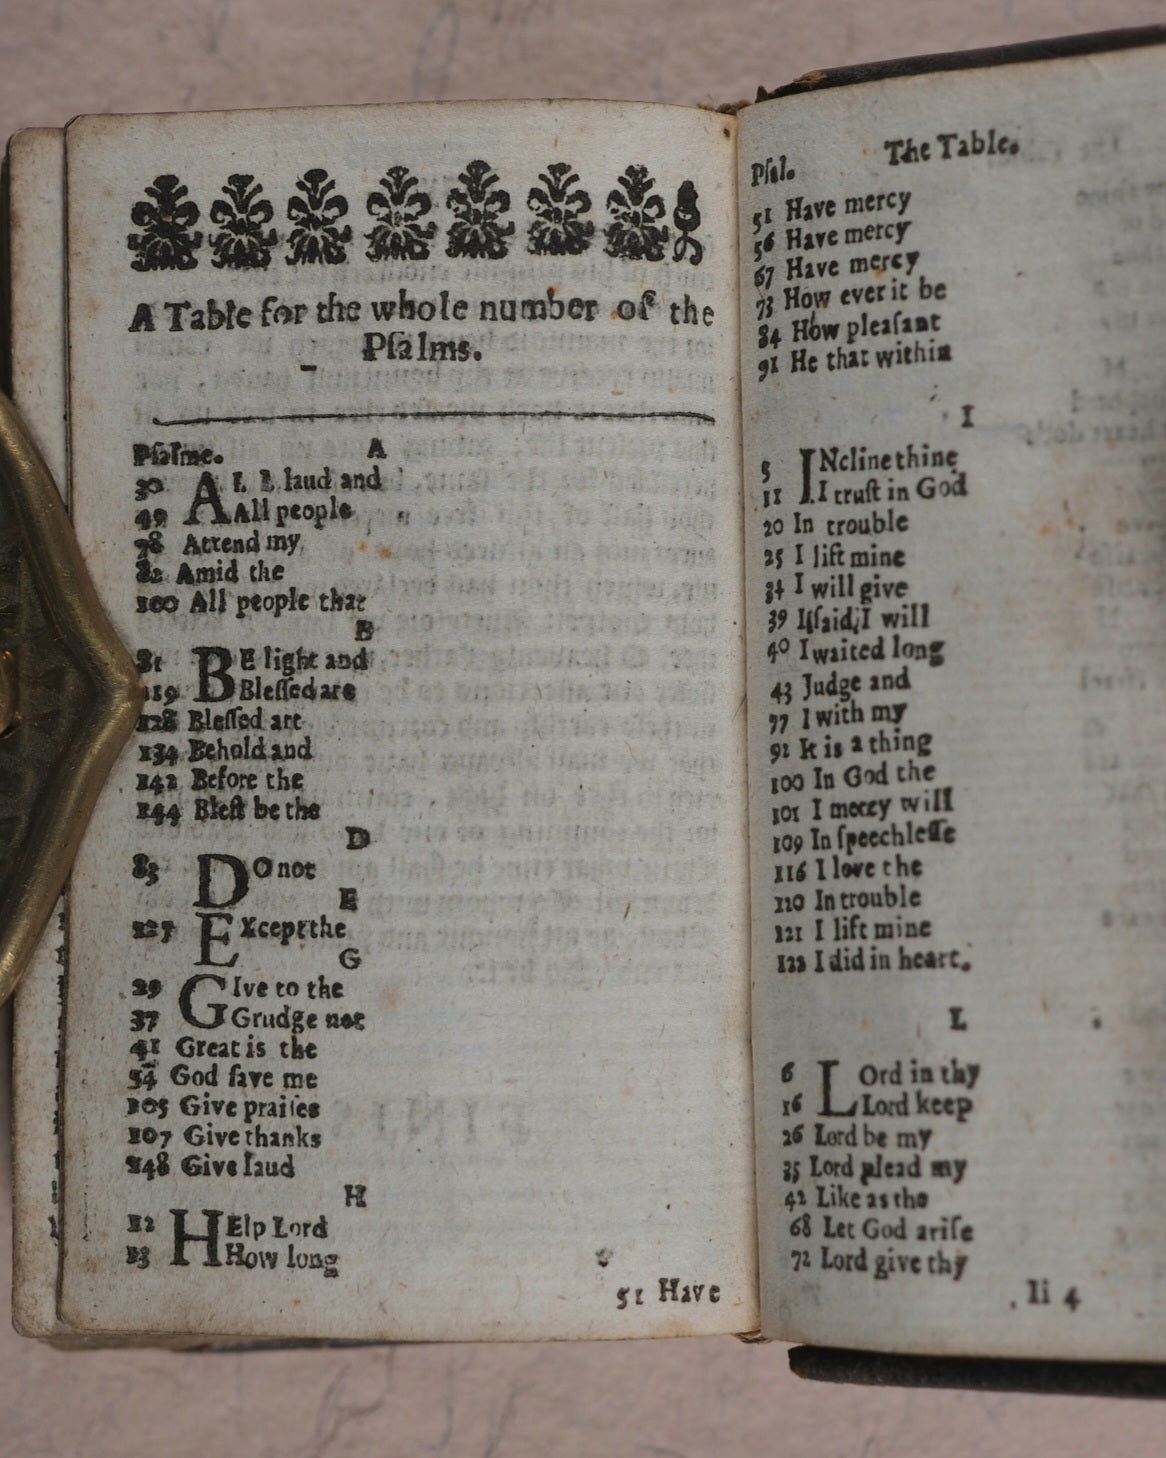 A Table for the whole number of the
Pſalms.
Pſalme. A
30 ALL laud and
49 All people
78 Attend my
82 Amid the
100 All people that
B
81 BE light and
119 Bleſſed are
128 Bleſſed are
134 Behold and
142 Before the
144 Bleſt be the
D
83 DO not
E
127 EXcept the
G
29 GIve to the
37 Grudge not
41 Great is the
54 God ſave me
105 Give praiſes
107 Give thanks
148 Give laud
H
12 HElp Lord
13 How long
51 Have
The Table.
Pſal.
51 Have mercy
56 Have mercy
67 Have mercy
73 How ever it be
84 How pleaſant
91 He that within
I
5 INcline thine
11 I truſt in God
20 In trouble
25 I lift mine
34 I will give
39 I ſaid, I will
40 I waited long
43 Judge and
77 I with my
92 It is a thing
100 In God the
101 I mercy will
109 In ſpeechleſſe
116 I love the
120 In trouble
121 I lift mine
122 I did in heart.
L
6 LOrd in thy
16 Lord keep
26 Lord be my
35 Lord plead my
42 Like as the
68 Let God ariſe
72 Lord give thy
Ii 4